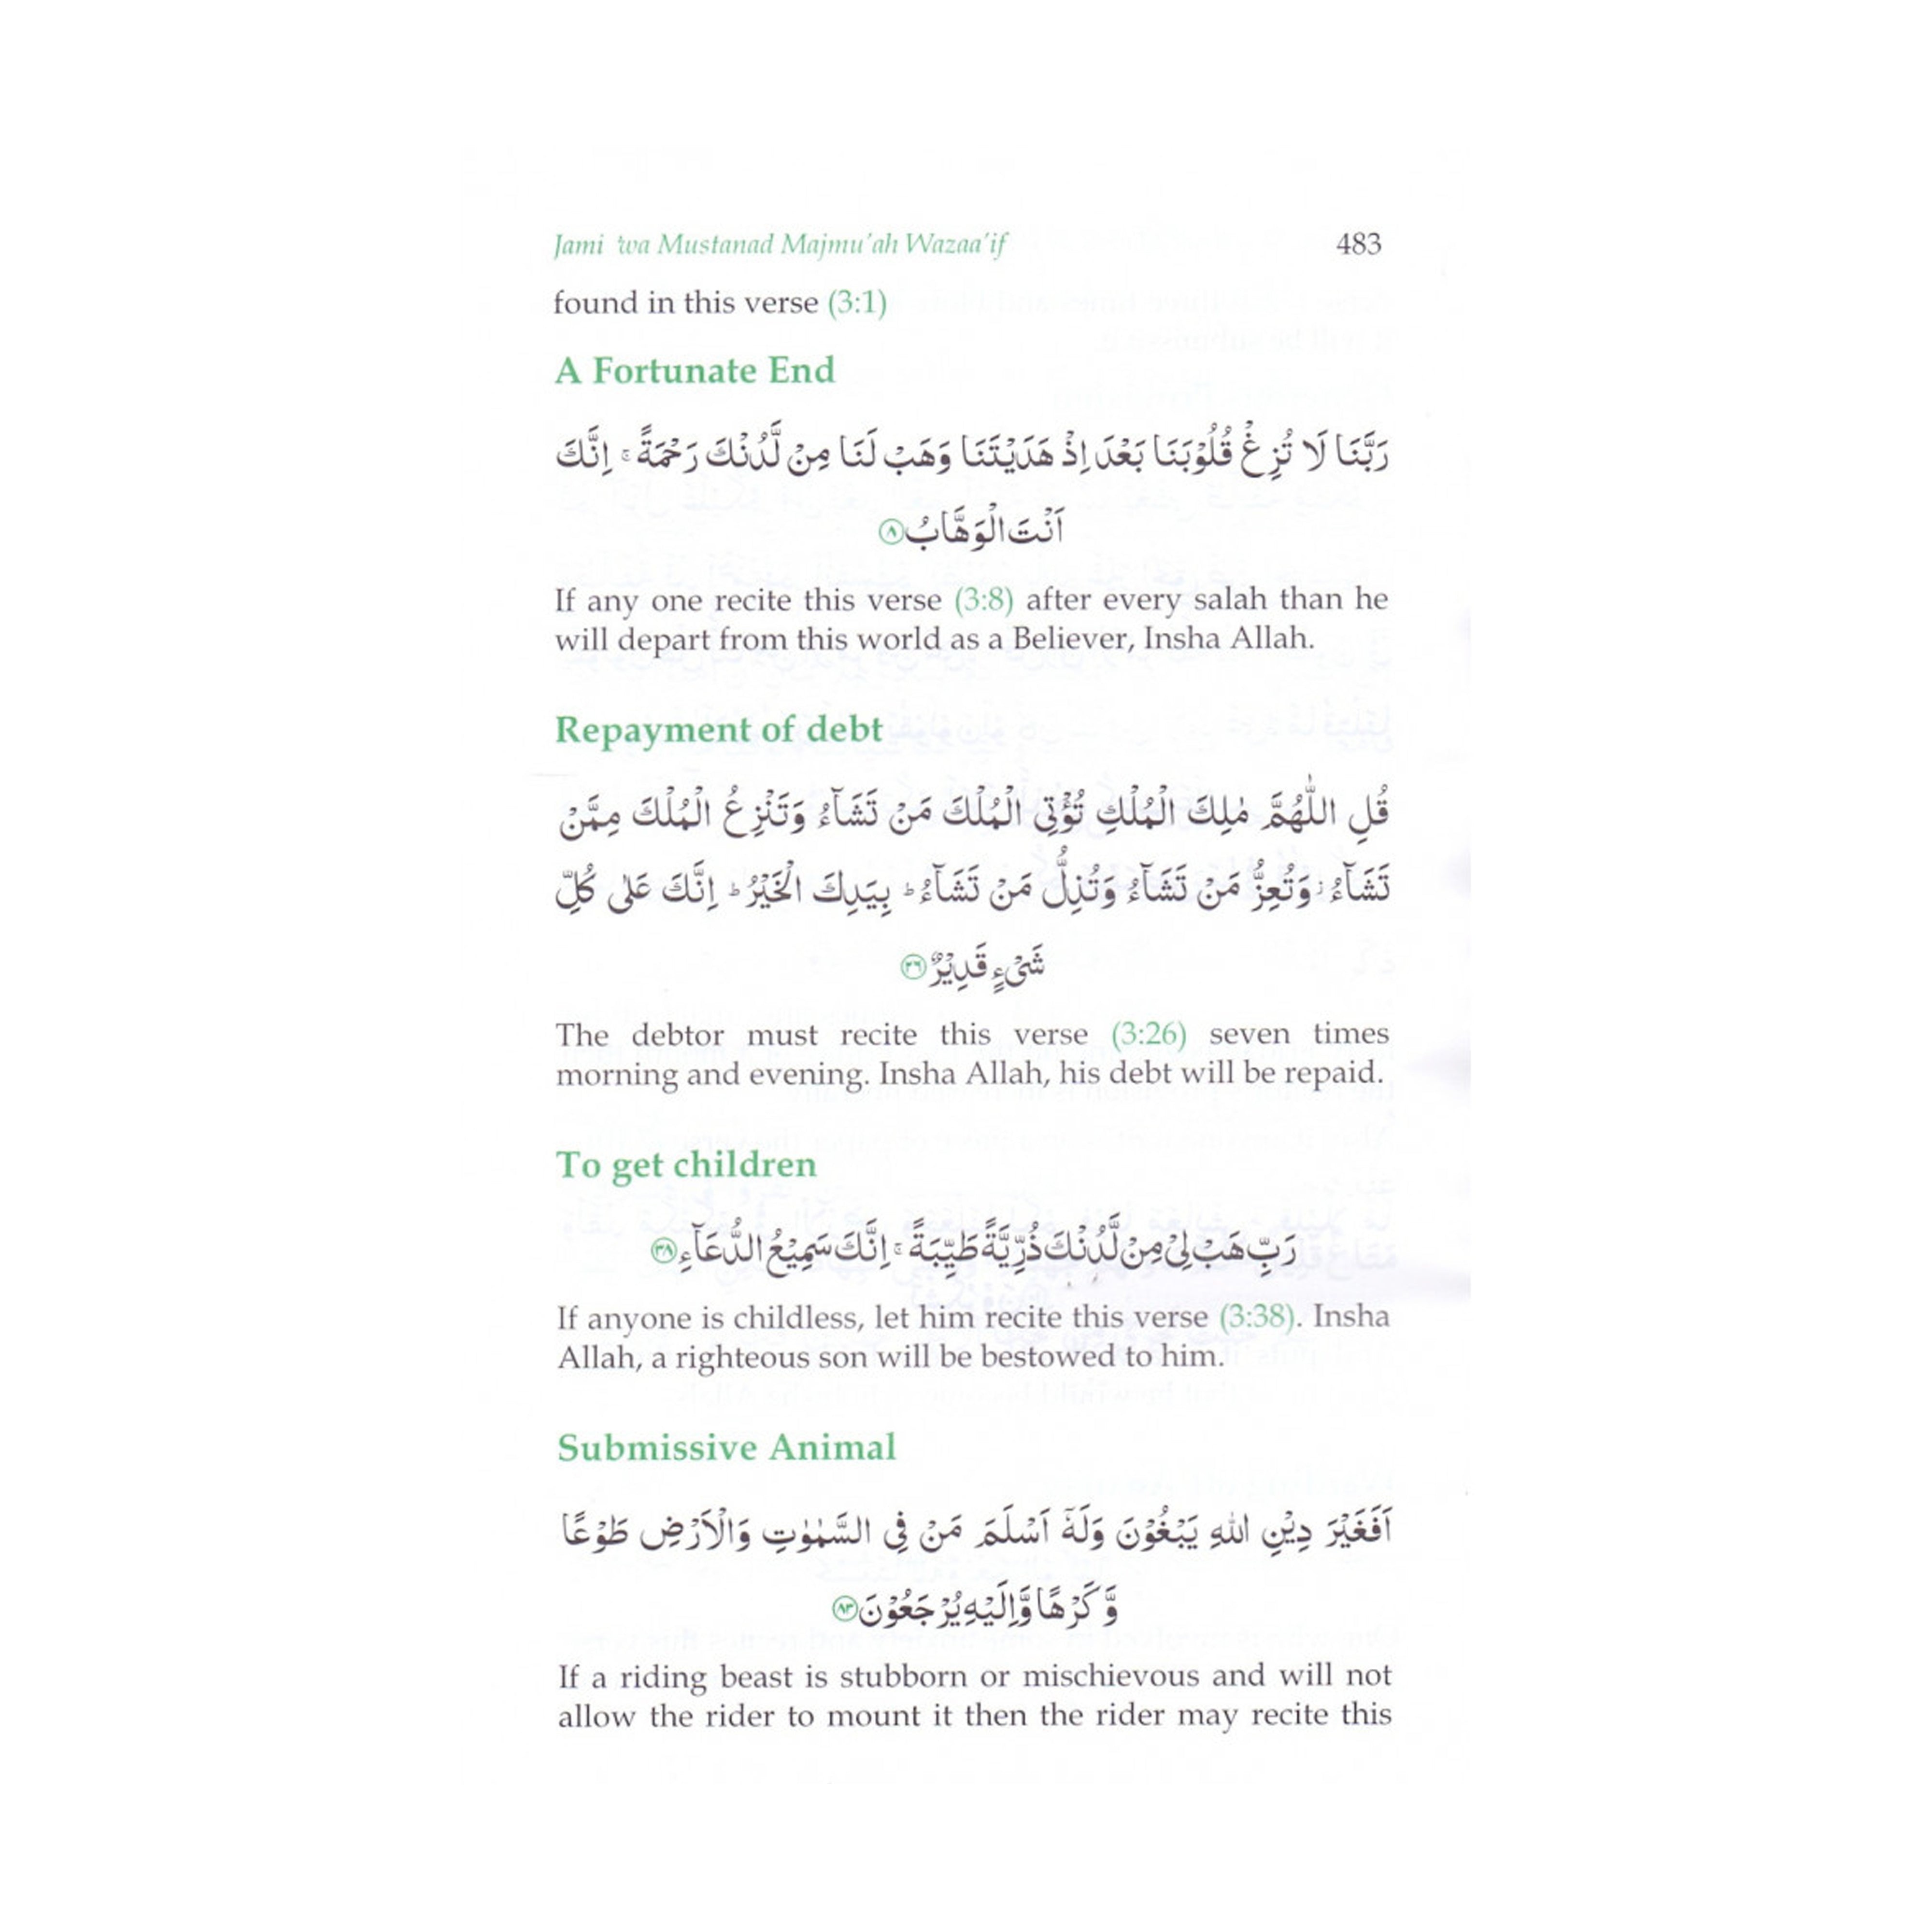 Jami 'wa Mustanad Majmu'ah Wazaa'if 483
found in this verse (3:1)
A Fortunate End
رَبَّنَا لَا تُزِغْ قُلُوْبَنَا بَعْدَ اِذْ هَدَيْتَنَا وَهَبْ لَنَا مِنْ لَّدُنْكَ رَحْمَةً ۚ اِنَّكَ
اَنْتَ الْوَهَّابُ ﴿۸﴾
If any one recite this verse (3:8) after every salah than he
will depart from this world as a Believer, Insha Allah.
Repayment of debt
قُلِ اللّٰهُمَّ مٰلِكَ الْمُلْكِ تُؤْتِی الْمُلْكَ مَنْ تَشَآءُ وَتَنْزِعُ الْمُلْكَ مِمَّنْ
تَشَآءُ ۫ وَتُعِزُّ مَنْ تَشَآءُ وَتُذِلُّ مَنْ تَشَآءُ ؕ بِيَدِكَ الْخَيْرُ ؕ اِنَّكَ عَلٰی كُلِّ
شَیْءٍ قَدِيْرٌ ﴿۲۶﴾
The debtor must recite this verse (3:26) seven times
morning and evening. Insha Allah, his debt will be repaid.
To get children
رَبِّ هَبْ لِیْ مِنْ لَّدُنْكَ ذُرِّيَّةً طَيِّبَةً ۚ اِنَّكَ سَمِيْعُ الدُّعَآءِ ﴿۳۸﴾
If anyone is childless, let him recite this verse (3:38). Insha
Allah, a righteous son will be bestowed to him.
Submissive Animal
اَفَغَيْرَ دِيْنِ اللهِ يَبْغُوْنَ وَلَهٗۤ اَسْلَمَ مَنْ فِی السَّمٰوٰتِ وَالْاَرْضِ طَوْعًا
وَّ كَرْهًا وَّاِلَيْهِ يُرْجَعُوْنَ ﴿۸۳﴾
If a riding beast is stubborn or mischievous and will not
allow the rider to mount it then the rider may recite this